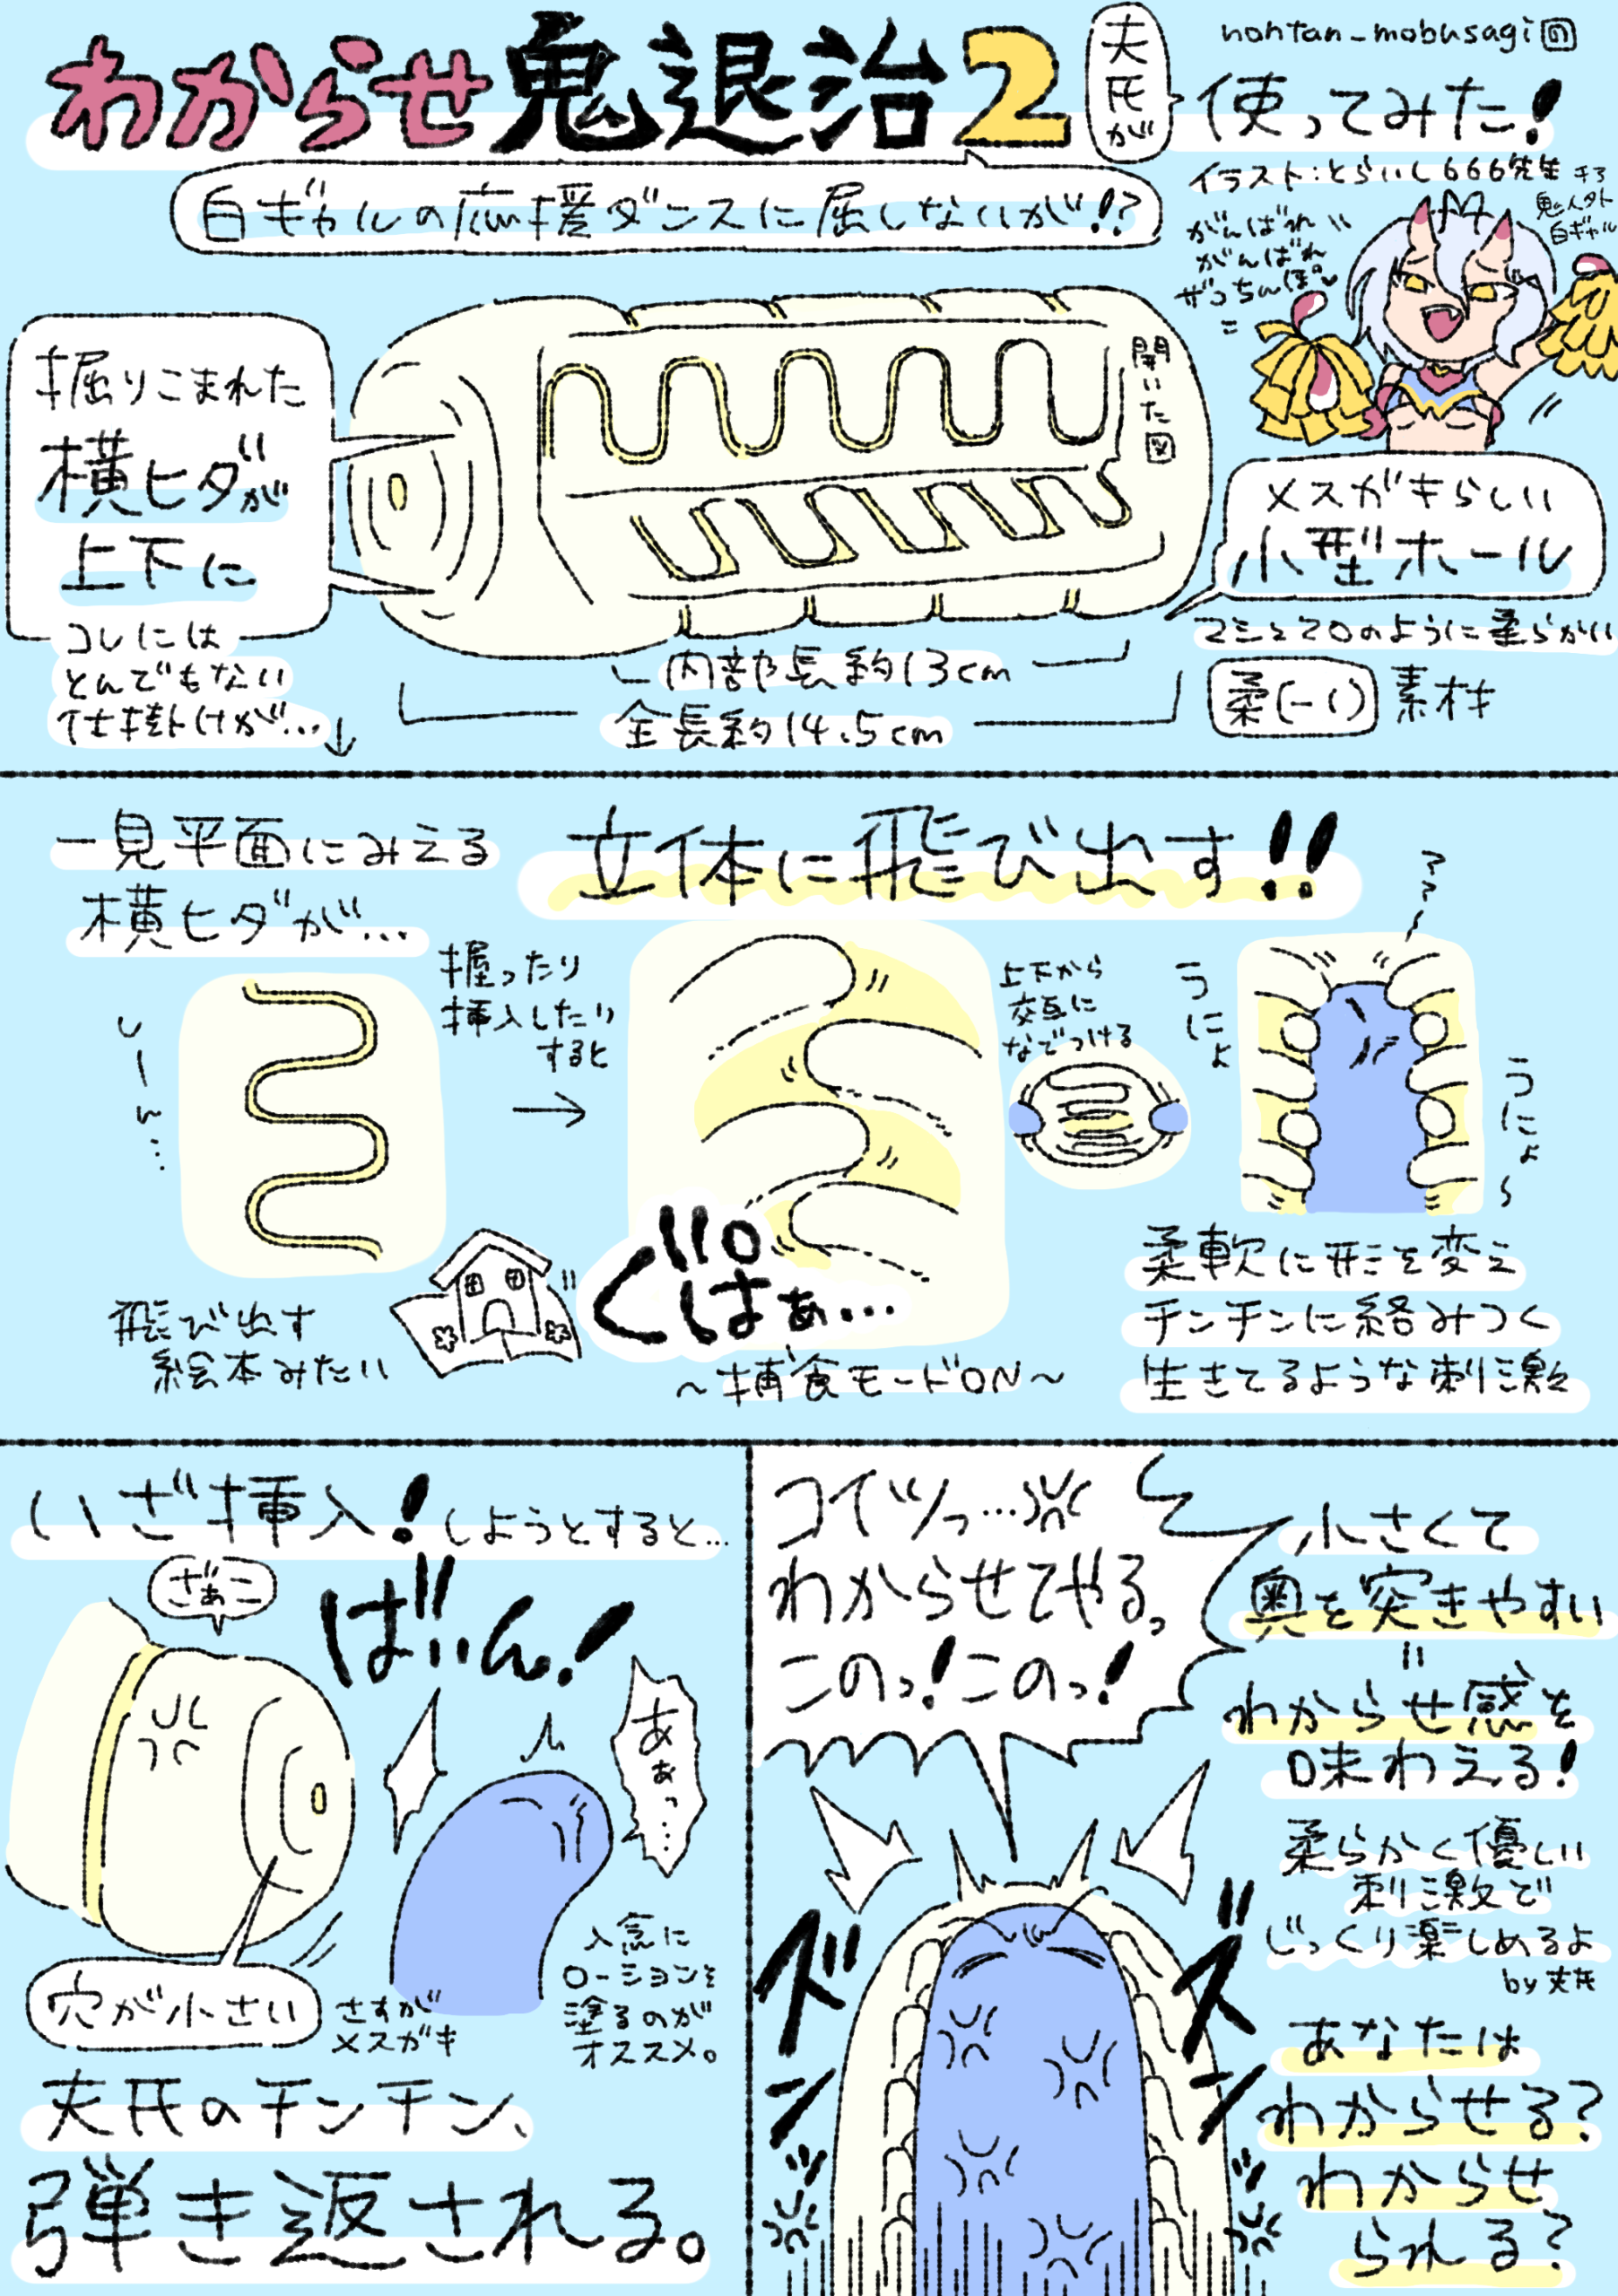 わからせ鬼退治2
夫氏が
使ってみた!
nontan_mobusagi
白ギャルの応援ダンスに屈しないが!?
イラスト:とらいし666先生
鬼人外
白ギャル
がんばれ
がんばれ
ざこちんぽ♡
掘りこまれた
横ヒダが
上下に
コレには
とんでもない
仕掛けが…↓
開いた図
内部長約13cm
全長約14.5cm
メスガキらしい
小型ホール
マシュマロのように柔らかい
柔(-1)素材
一見平面にみえる
横ヒダが…
立体に飛び出す!!
しーん…
握ったり
挿入したり
すると
→
上下から
交互に
なでつける
うにょ
うにょ~
飛び出す
絵本みたい
ぐぱぁ…
~捕食モードON~
柔軟に形を変え
チンチンに絡みつく
生きてるような刺激
いざ挿入!しようとすると…
ざぁこ
ばいん!
あぁっ…
穴が小さい
さすが
メスガキ
入念に
ローションを
塗るのが
オススメ。
夫氏のチンチン、
弾き返される。
コイツっ…
わからせてやるっ
このっ!このっ!
小さくて
奥を突きやすい
=
わからせ感を
味わえる!
柔らかく優しい
刺激で
じっくり楽しめるよ
by夫氏
ズンッ
ズンッ
あなたは
わからせる?
わからせ
られる?